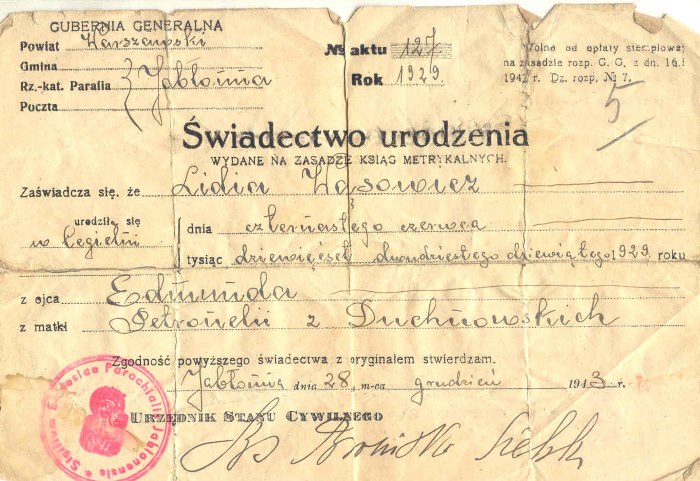 GUBERNIA GENERALNA
Powiat Warszawski
Gmina
Rz.-kat. Parafia Jabłonna
Poczta
№ aktu 127
Rok 1929
Wolne od opłaty stemplowej
na zasadzie rozp. G. G. z dn. 16.I
1942 r. Dz. rozp. № 7.
5
Świadectwo urodzenia
WYDANE NA ZASADZIE KSIĄG METRYKALNYCH.
Zaświadcza się, że Lidia Wąsowicz
urodziła się
w Legielni
dnia czternastego czerwca
tysiąc dziewięćset dwudziestego dziewiątego 1929 roku
z ojca Edmunda
z matki Petroneli z Duchnowskich
Zgodność powyższego świadectwa z oryginałem stwierdzam.
Jabłonna dnia 28 m-ca grudzień 1943 r.
URZĘDNIK STANU CYWILNEGO
Ks